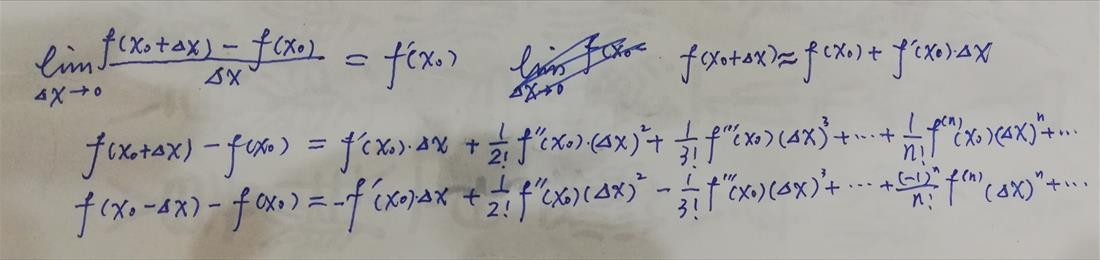 lim_{Δx→0} \frac{f(x₀+Δx) - f(x₀)}{Δx} = f'(x₀)   f(x₀+Δx) ≈ f(x₀) + f'(x₀)·Δx
f(x₀+Δx) - f(x₀) = f'(x₀)·Δx + \frac{1}{2!} f''(x₀)·(Δx)² + \frac{1}{3!} f'''(x₀)(Δx)³ + ··· + \frac{1}{n!} f^{(n)}(x₀)(Δx)^n + ···
f(x₀-Δx) - f(x₀) = -f'(x₀)·Δx + \frac{1}{2!} f''(x₀)(Δx)² - \frac{1}{3!} f'''(x₀)(Δx)³ + ··· + \frac{(-1)^n}{n!} f^{(n)}(Δx)^n + ···